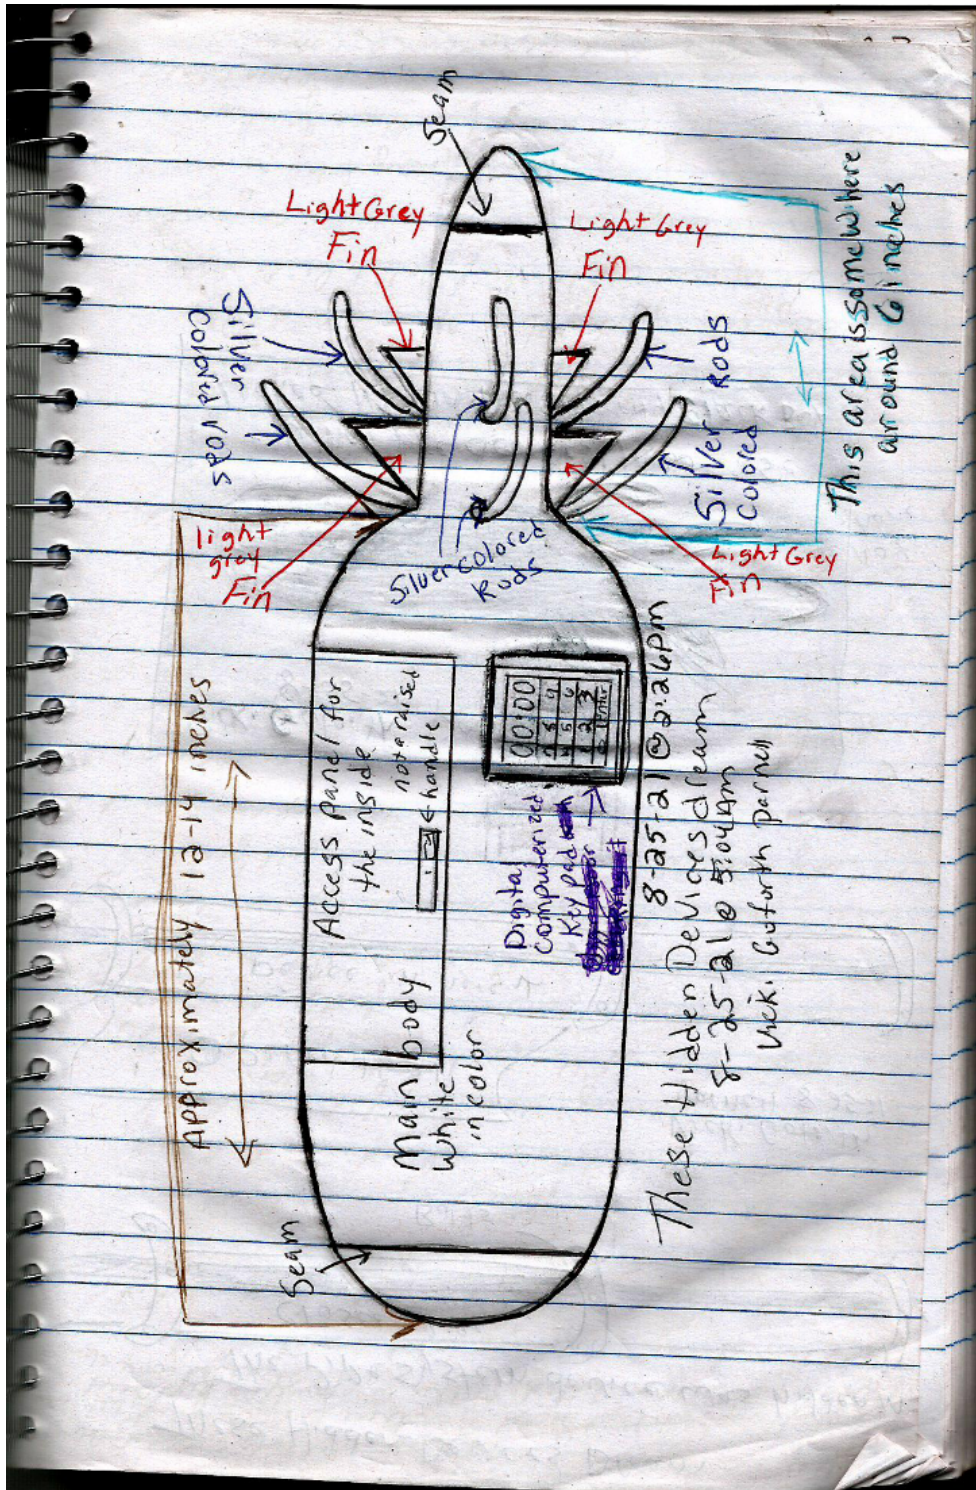 Seam
Light Grey
Fin
Light Grey
Fin
Silver
colored rods
Silver
Colored
rods
This area is somewhere
around 6 inches
light
grey
Fin
Silver colored
Rods
Light Grey
Fin
Approximately 12-14 inches
Access panel for
the inside
not a raised
handle
00:00
7 8 9
4 5 6
1 2 3
0 Enter
Digital
Computerized
Key pad
Main body
White
in color
Seam
8-25-21 @ 2:26pm
These Hidden Devices dream
8-25-21 @ 5:04Am
Vicki Goforth parnell